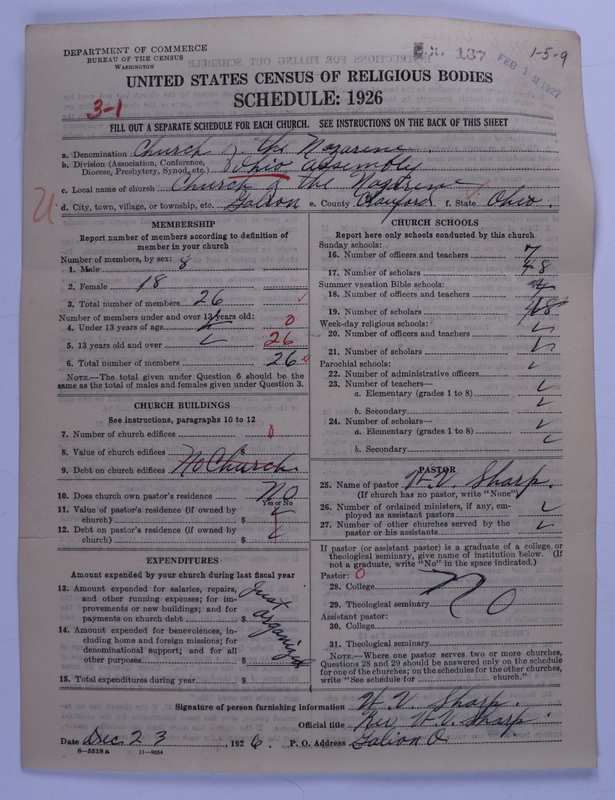 DEPARTMENT OF COMMERCE
BUREAU OF THE CENSUS
WASHINGTON
137
FEB 12 1927
1-5-9
UNITED STATES CENSUS OF RELIGIOUS BODIES
SCHEDULE: 1926
3-1
FILL OUT A SEPARATE SCHEDULE FOR EACH CHURCH. SEE INSTRUCTIONS ON THE BACK OF THIS SHEET
a. Denomination Church of the Nazarene
b. Division (Association, Conference, Diocese, Presbytery, Synod, etc.) Ohio assembly
c. Local name of church Church of the Nazarene
d. City, town, village, or township, etc. Galion e. County Crawford f. State Ohio.
MEMBERSHIP
Report number of members according to definition of member in your church
Number of members, by sex:
1. Male 8
2. Female 18
3. Total number of members 26
Number of members under and over 13 years old:
4. Under 13 years of age 0
5. 13 years old and over 26
6. Total number of members 26
NOTE.—The total given under Question 6 should be the same as the total of males and females given under Question 3.
CHURCH BUILDINGS
See instructions, paragraphs 10 to 12
7. Number of church edifices 0
8. Value of church edifices $
9. Debt on church edifices No Church
10. Does church own pastor's residence No
Yes or No
11. Value of pastor's residence (if owned by church) $
12. Debt on pastor's residence (if owned by church) $
EXPENDITURES
Amount expended by your church during last fiscal year
13. Amount expended for salaries, repairs, and other running expenses; for improvements or new buildings; and for payments on church debt $
Just organized
14. Amount expended for benevolences, including home and foreign missions; for denominational support; and for all other purposes $
15. Total expenditures during year $
CHURCH SCHOOLS
Report here only schools conducted by this church
Sunday schools:
16. Number of officers and teachers 7
17. Number of scholars 48
Summer vacation Bible schools:
18. Number of officers and teachers
19. Number of scholars
Week-day religious schools:
20. Number of officers and teachers
21. Number of scholars
Parochial schools:
22. Number of administrative officers
23. Number of teachers—
a. Elementary (grades 1 to 8)
b. Secondary
24. Number of scholars—
a. Elementary (grades 1 to 8)
b. Secondary
PASTOR
25. Name of pastor W. V. Sharp.
(If church has no pastor, write "None")
26. Number of ordained ministers, if any, employed as assistant pastors
27. Number of other churches served by the pastor or his assistants
If pastor (or assistant pastor) is a graduate of a college or theological seminary, give name of institution below. (If not a graduate, write "No" in the space indicated.)
Pastor: 0
28. College No
29. Theological seminary
Assistant pastor:
30. College
31. Theological seminary
NOTE.—Where one pastor serves two or more churches, Questions 28 and 29 should be answered only on the schedule for one of the churches; on the schedules for the other churches, write "See schedule for church."
Signature of person furnishing information W. V. Sharp.
Official title Rev. W. V. Sharp.
Date Dec 23, 1926. P. O. Address Galion O.
8-5518a 11-9054